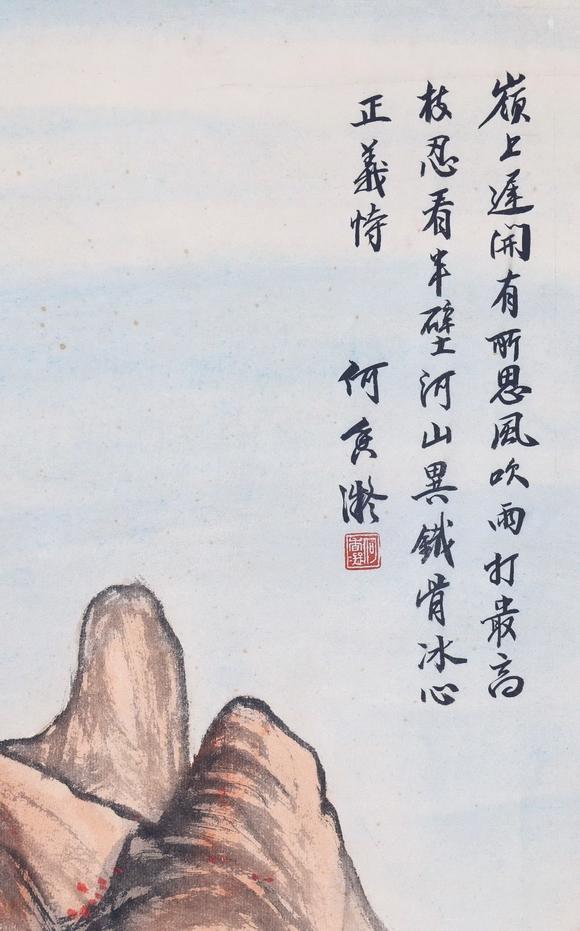 嶺上遲開有所思風吹雨打最高
枝忍看半壁河山異鐵骨冰心
正義恃
何香凝
何香凝